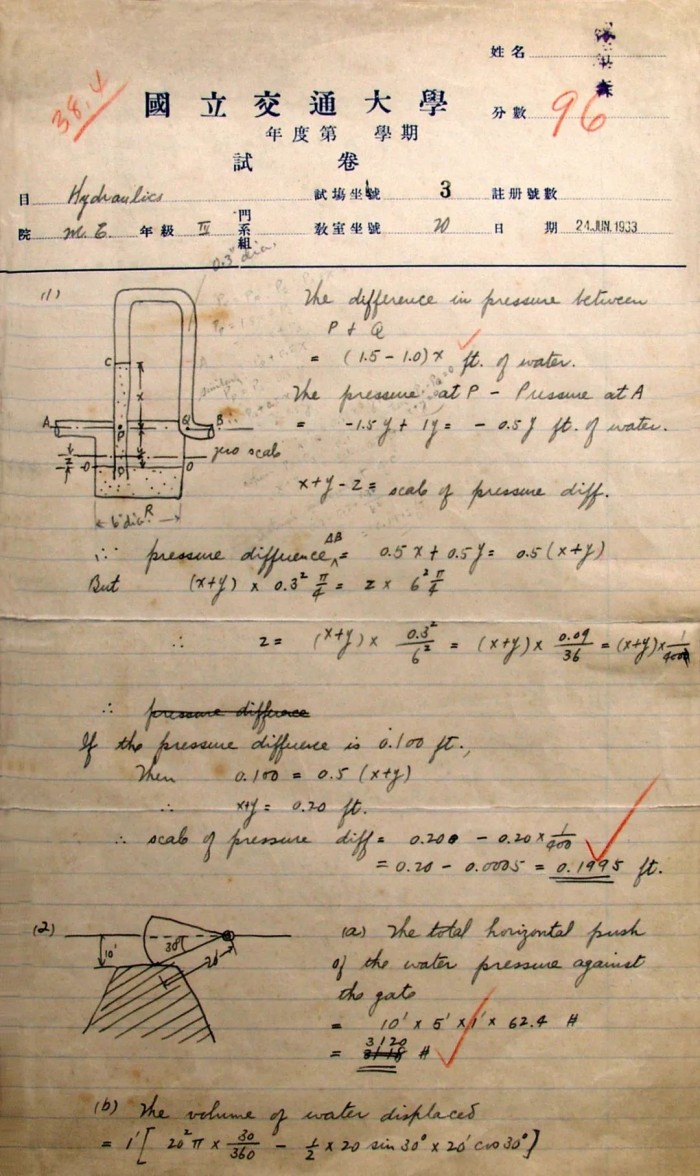 姓名
38.4
國立交通大學
分數 96
年度第 學期
試卷
目 Hydraulics 試場坐號 3 註册號數
院 M.E. 年級 IV 門系組 教室坐號 20 日期 24.JUN.1933
0.3" dia.
(1)
The difference in pressure between
P & Q
= (1.5-1.0)x ft. of water.
C
x
The pressure at P - Pressure at A
A P Q B
= -1.5y + 1y = -0.5y ft. of water.
zero scale
O D O
x+y-z = scale of pressure diff.
R
6" dia.
∴ pressure difference AB = 0.5x + 0.5y = 0.5(x+y)
But (x+y) × 0.3² π/4 = z × 6² π/4
∴ z = (x+y) × 0.3²/6² = (x+y) × 0.09/36 = (x+y) × 1/400
∴ pressure difference
If the pressure difference is 0.100 ft.,
Then 0.100 = 0.5 (x+y)
∴ x+y = 0.20 ft.
∴ scale of pressure diff = 0.200 - 0.20 × 1/400
= 0.20 - 0.0005 = 0.1995 ft.
(2)
10'
30°
20'
(a) The total horizontal push
of the water pressure against
the gate
= 10' × 5' × 1' × 62.4 #
= 3120 #
(b) The volume of water displaced
= 1' [ 20² π × 30/360 - 1/2 × 20 sin 30° × 20' cos 30° ]